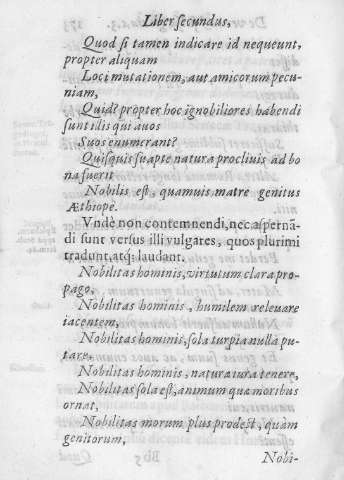 Liber secundus,
Quod si tamen indicare id nequeunt,
propter aliquam
Loci mutationem, aut amicorum pecu-
niam,
Quid? propter hoc ignobiliores habendi
sunt illis qui auos
Suos enumerant?
Quisquis suapte natura procliuis ad bo
na fuerit
Nobilis est, quamuis matre genitus
Æthiope.
Vndè non contemnendi, nec aspernã-
di sunt versus illi vulgares, quos plurimi
tradunt, atq; laudant.
Nobilitas hominis, virtutum clara pro-
pago,
Nobilitas hominis, humilem releuare
iacentem,
Nobilitas hominis, sola turpia nulla pu-
tare,
Nobilitas hominis, naturæ iura tenere,
Nobilitas sola est, animum quæ moribus
ornat,
Nobilitas morum plus prodest, quàm
genitorum,
Bb 5
Nobi-